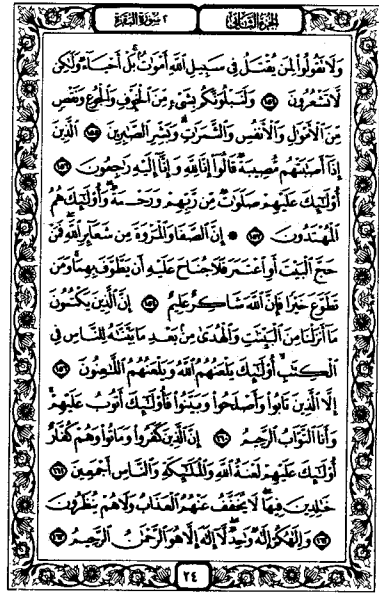 الجزء الثاني ٢ سورة البقرة
وَلَا تَقُولُوا۟ لِمَن يُقْتَلُ فِى سَبِيلِ ٱللَّهِ أَمْوَٰتٌۢ بَلْ أَحْيَآءٌ وَلَٰكِن
لَّا تَشْعُرُونَ ١٥٤ وَلَنَبْلُوَنَّكُم بِشَىْءٍ مِّنَ ٱلْخَوْفِ وَٱلْجُوعِ وَنَقْصٍ
مِّنَ ٱلْأَمْوَٰلِ وَٱلْأَنفُسِ وَٱلثَّمَرَٰتِ ۗ وَبَشِّرِ ٱلصَّٰبِرِينَ ١٥٥ ٱلَّذِينَ
إِذَآ أَصَٰبَتْهُم مُّصِيبَةٌ قَالُوٓا۟ إِنَّا لِلَّهِ وَإِنَّآ إِلَيْهِ رَٰجِعُونَ ١٥٦
أُو۟لَٰٓئِكَ عَلَيْهِمْ صَلَوَٰتٌ مِّن رَّبِّهِمْ وَرَحْمَةٌ ۖ وَأُو۟لَٰٓئِكَ هُمُ
ٱلْمُهْتَدُونَ ١٥٧ ۞ إِنَّ ٱلصَّفَا وَٱلْمَرْوَةَ مِن شَعَآئِرِ ٱللَّهِ ۖ فَمَنْ
حَجَّ ٱلْبَيْتَ أَوِ ٱعْتَمَرَ فَلَا جُنَاحَ عَلَيْهِ أَن يَطَّوَّفَ بِهِمَا ۚ وَمَن
تَطَوَّعَ خَيْرًا فَإِنَّ ٱللَّهَ شَاكِرٌ عَلِيمٌ ١٥٨ إِنَّ ٱلَّذِينَ يَكْتُمُونَ
مَآ أَنزَلْنَا مِنَ ٱلْبَيِّنَٰتِ وَٱلْهُدَىٰ مِنۢ بَعْدِ مَا بَيَّنَّٰهُ لِلنَّاسِ فِى
ٱلْكِتَٰبِ ۙ أُو۟لَٰٓئِكَ يَلْعَنُهُمُ ٱللَّهُ وَيَلْعَنُهُمُ ٱللَّٰعِنُونَ ١٥٩
إِلَّا ٱلَّذِينَ تَابُوا۟ وَأَصْلَحُوا۟ وَبَيَّنُوا۟ فَأُو۟لَٰٓئِكَ أَتُوبُ عَلَيْهِمْ ۚ
وَأَنَا ٱلتَّوَّابُ ٱلرَّحِيمُ ١٦٠ إِنَّ ٱلَّذِينَ كَفَرُوا۟ وَمَاتُوا۟ وَهُمْ كُفَّارٌ
أُو۟لَٰٓئِكَ عَلَيْهِمْ لَعْنَةُ ٱللَّهِ وَٱلْمَلَٰٓئِكَةِ وَٱلنَّاسِ أَجْمَعِينَ ١٦١
خَٰلِدِينَ فِيهَا ۖ لَا يُخَفَّفُ عَنْهُمُ ٱلْعَذَابُ وَلَا هُمْ يُنظَرُونَ
١٦٢ وَإِلَٰهُكُمْ إِلَٰهٌ وَٰحِدٌ ۖ لَّآ إِلَٰهَ إِلَّا هُوَ ٱلرَّحْمَٰنُ ٱلرَّحِيمُ ١٦٣
٢٤